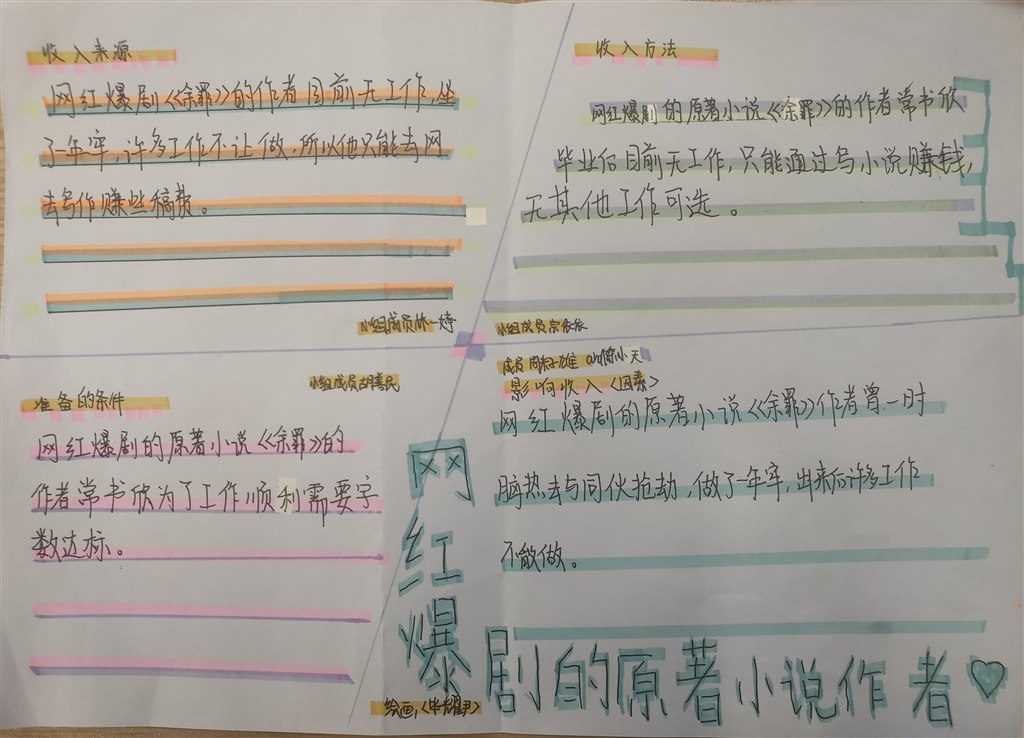 收入来源
网红爆剧《余罪》的作者目前无工作,坐
了一年牢,许多工作不让做,所以他只能去网
去写作赚些稿费。
小组成员 一婷
收入方法
网红爆剧的原著小说《余罪》的作者常书欣
毕业后目前无工作,只能通过写小说赚钱,
无其他工作可选。
小组成员宗依依
小组成员胡嘉民
准备的条件
网红爆剧的原著小说《余罪》的
作者常书欣为了工作顺利需要字
数达标。
成员
影响收入《因素》
网红爆剧的原著小说《余罪》作者曾一时
脑热去与同伙抢劫,做了一年牢,出来后许多工作
不能做。
网红爆剧的原著小说作者♡
绘画,《 》